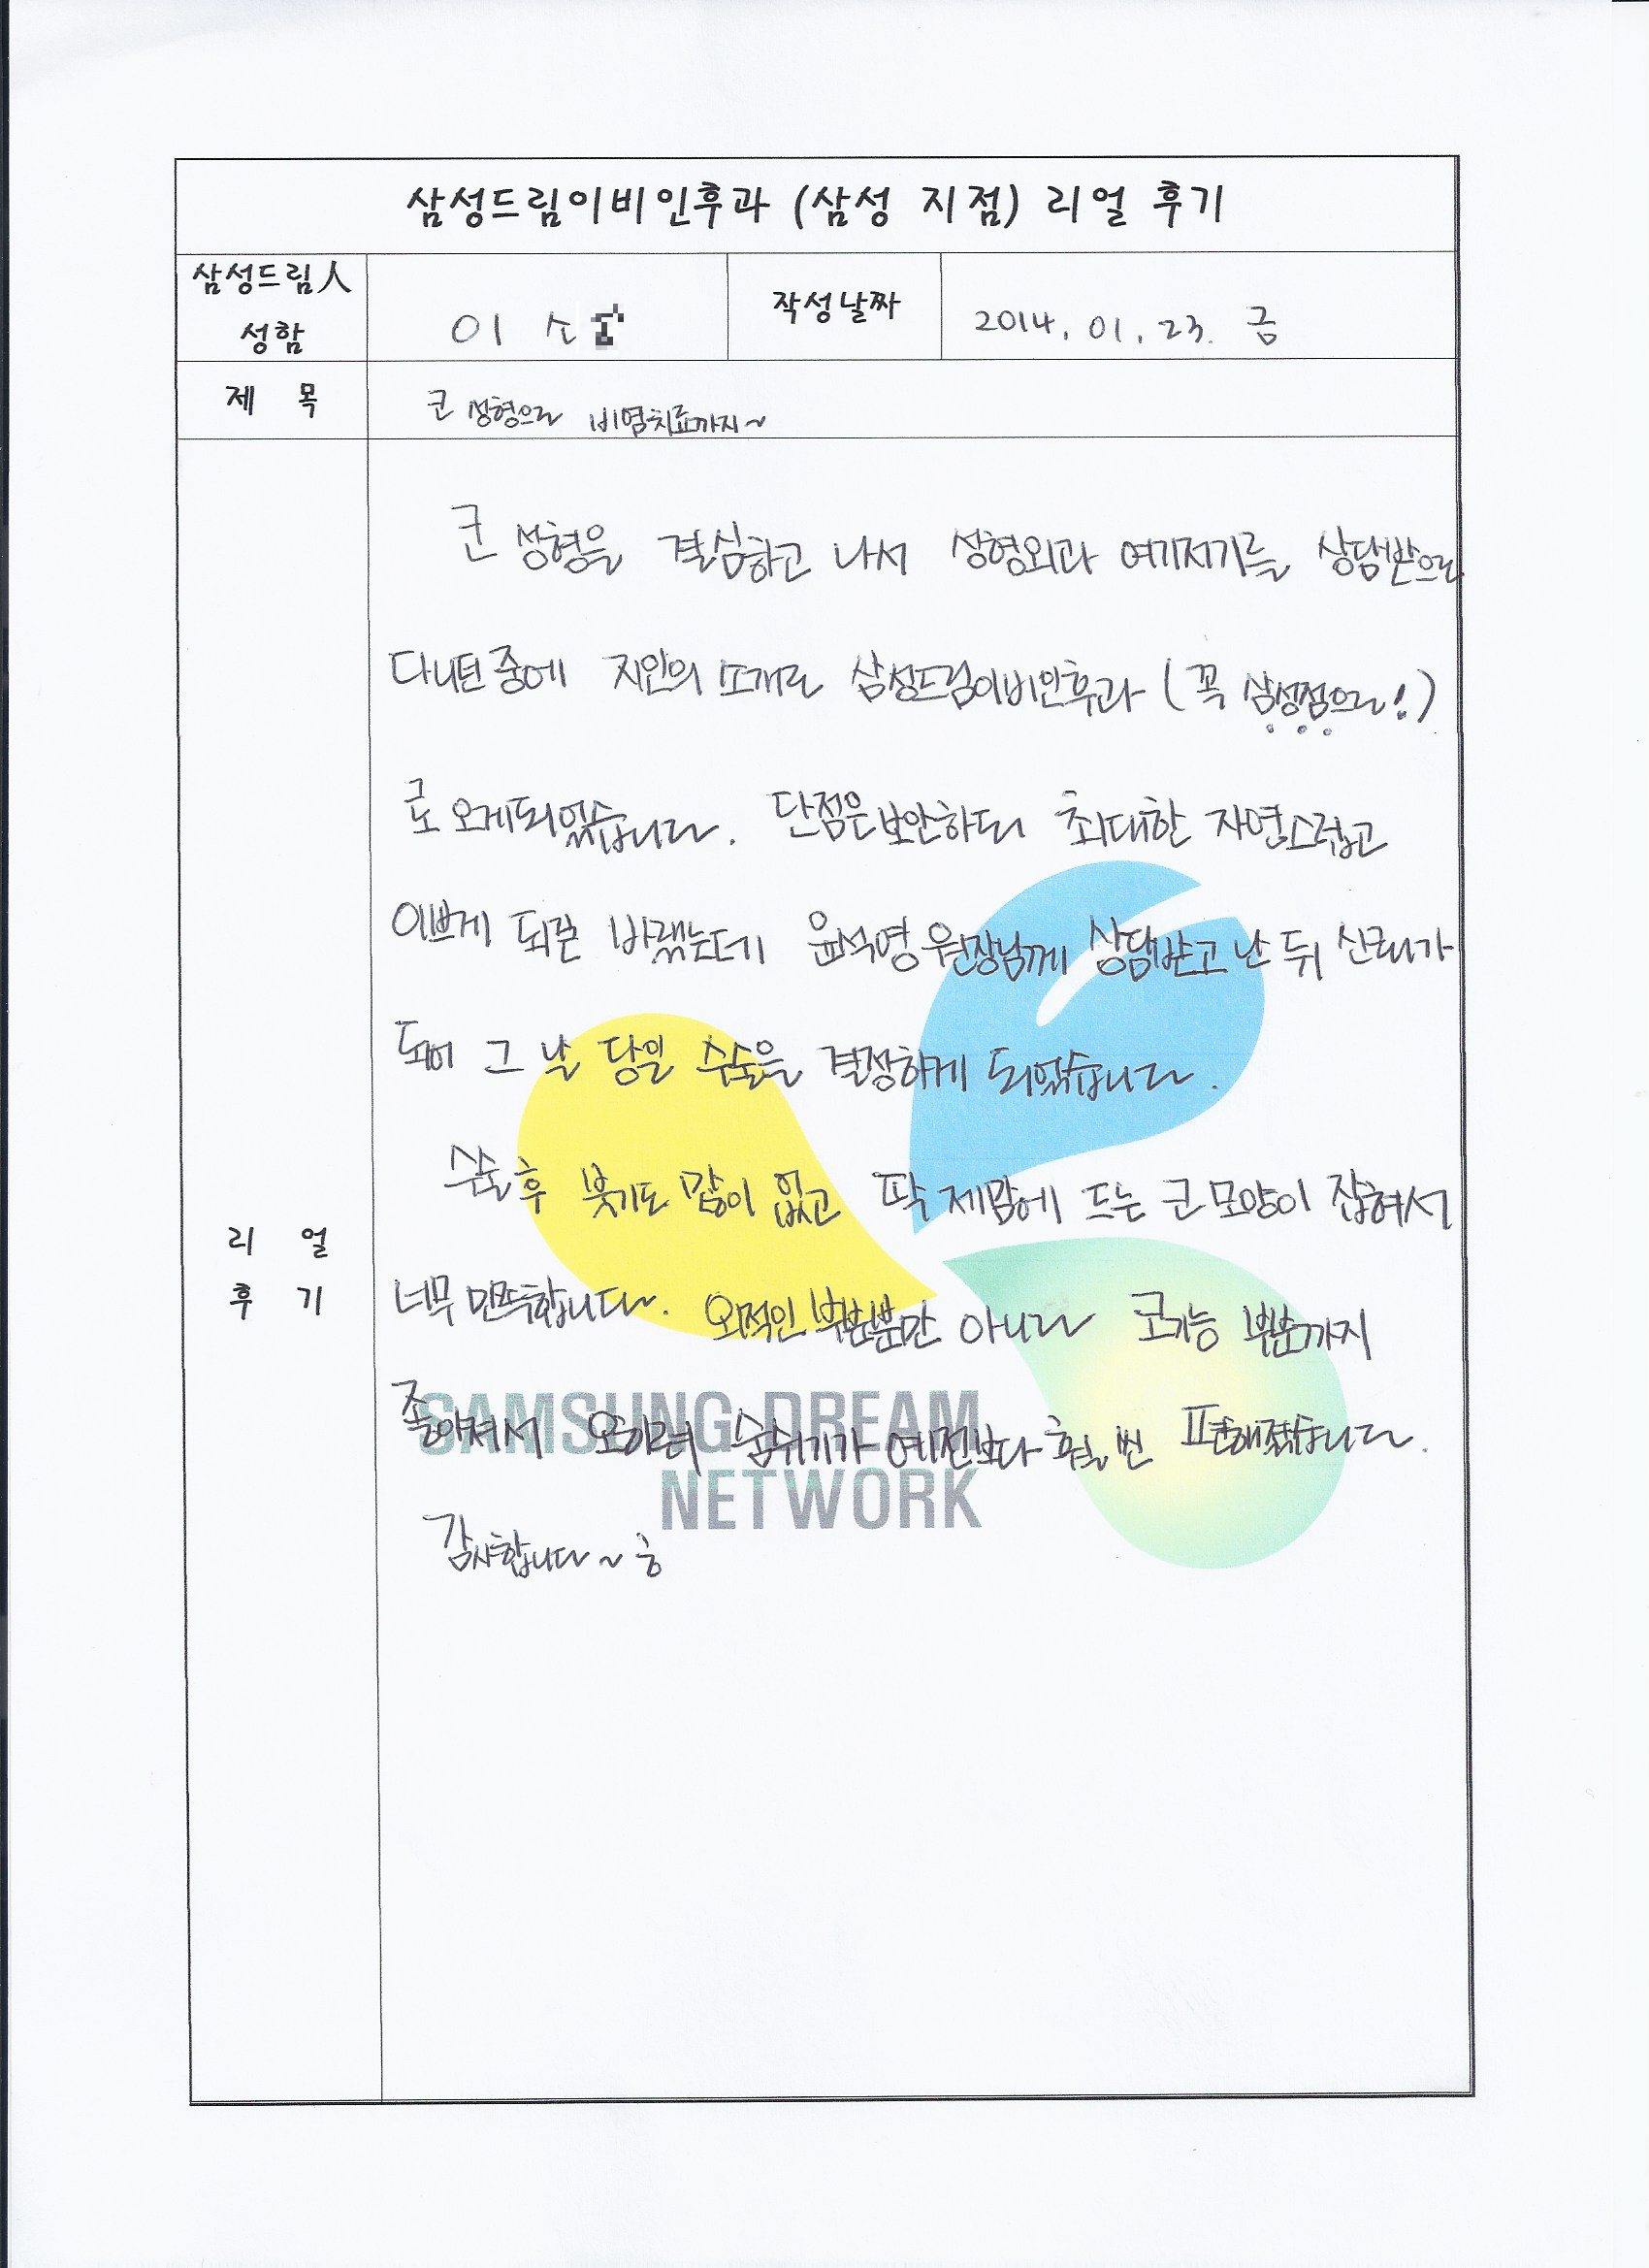 삼성드림이비인후과 (삼성 지점) 리얼 후기
삼성드림人
성함
이
작성날짜
2014. 01. 23. 금
제 목
코 성형으로 비염치료까지~
코 성형을 결심하고 나서 성형외과 여기저기를 상담받으러
다니던 중에 지인의 소개로 삼성드림이비인후과 (꼭 삼성점으로!)
로 오게되었습니다. 단점은 보안하되 최대한 자연스럽고
이쁘게 되길 바랬는데 윤석영 원장님께 상담받고 난 뒤 신뢰가
되어 그 날 당일 수술을 결정하게 되었습니다.
수술 후 붓기도 많이 없고 딱 제맘에 드는 코 모양이 잡혀서
너무 만족합니다. 외적인 부분뿐만 아니라 코기능 부분까지
좋아져서 오히려 숨쉬기가 예전보다 훨씬 편해졌습니다.
감사합니다~
리 얼
후 기
SAMSUNG DREAM
NETWORK